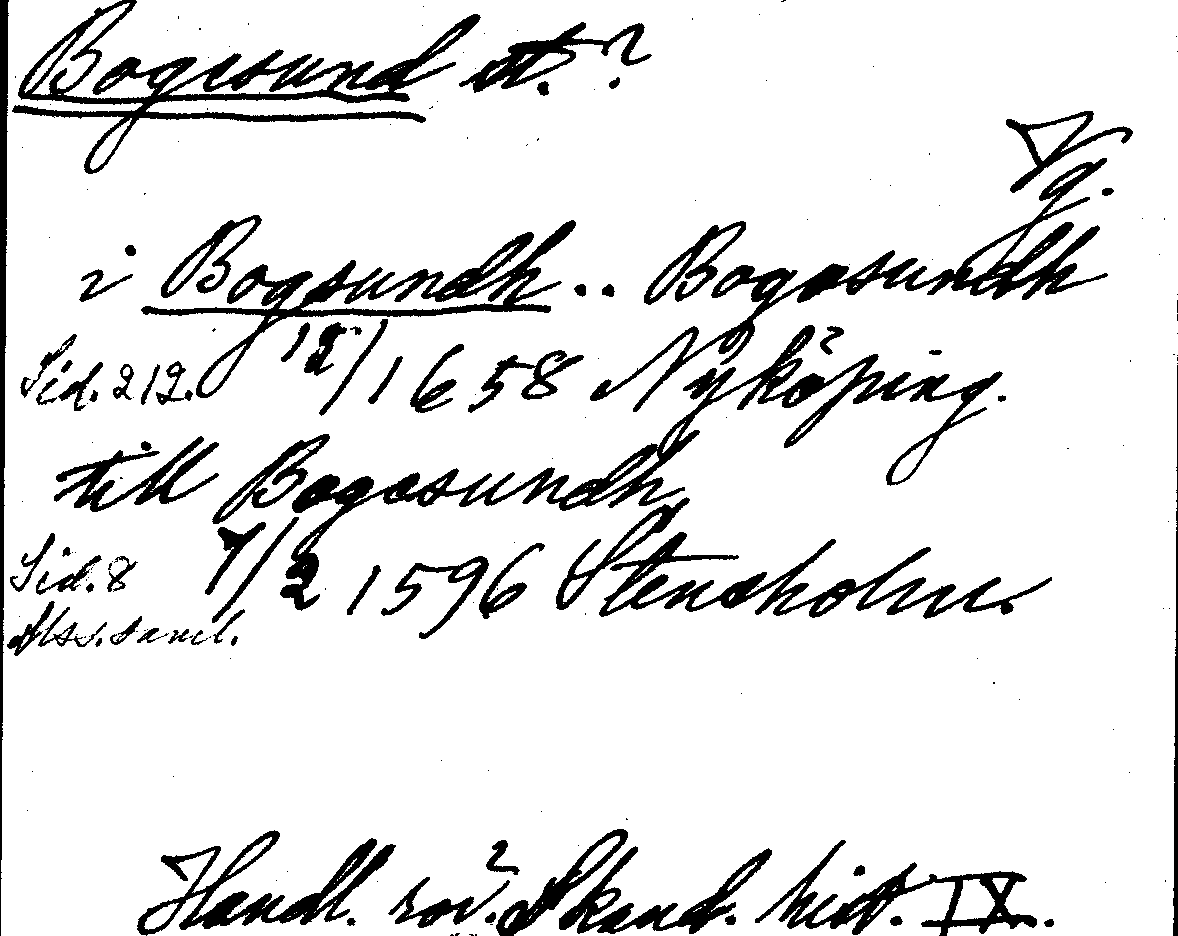 Bogesund st.?
Vg.
i Bogsundh .. Bogesundh
Sid. 212. 12/1 1658 Nyköping.
till Bogesundh,
Sid. 8 7/2 1596 Stensholm.
Hss. saml.
Handl. rör. Skand. hist. IX.